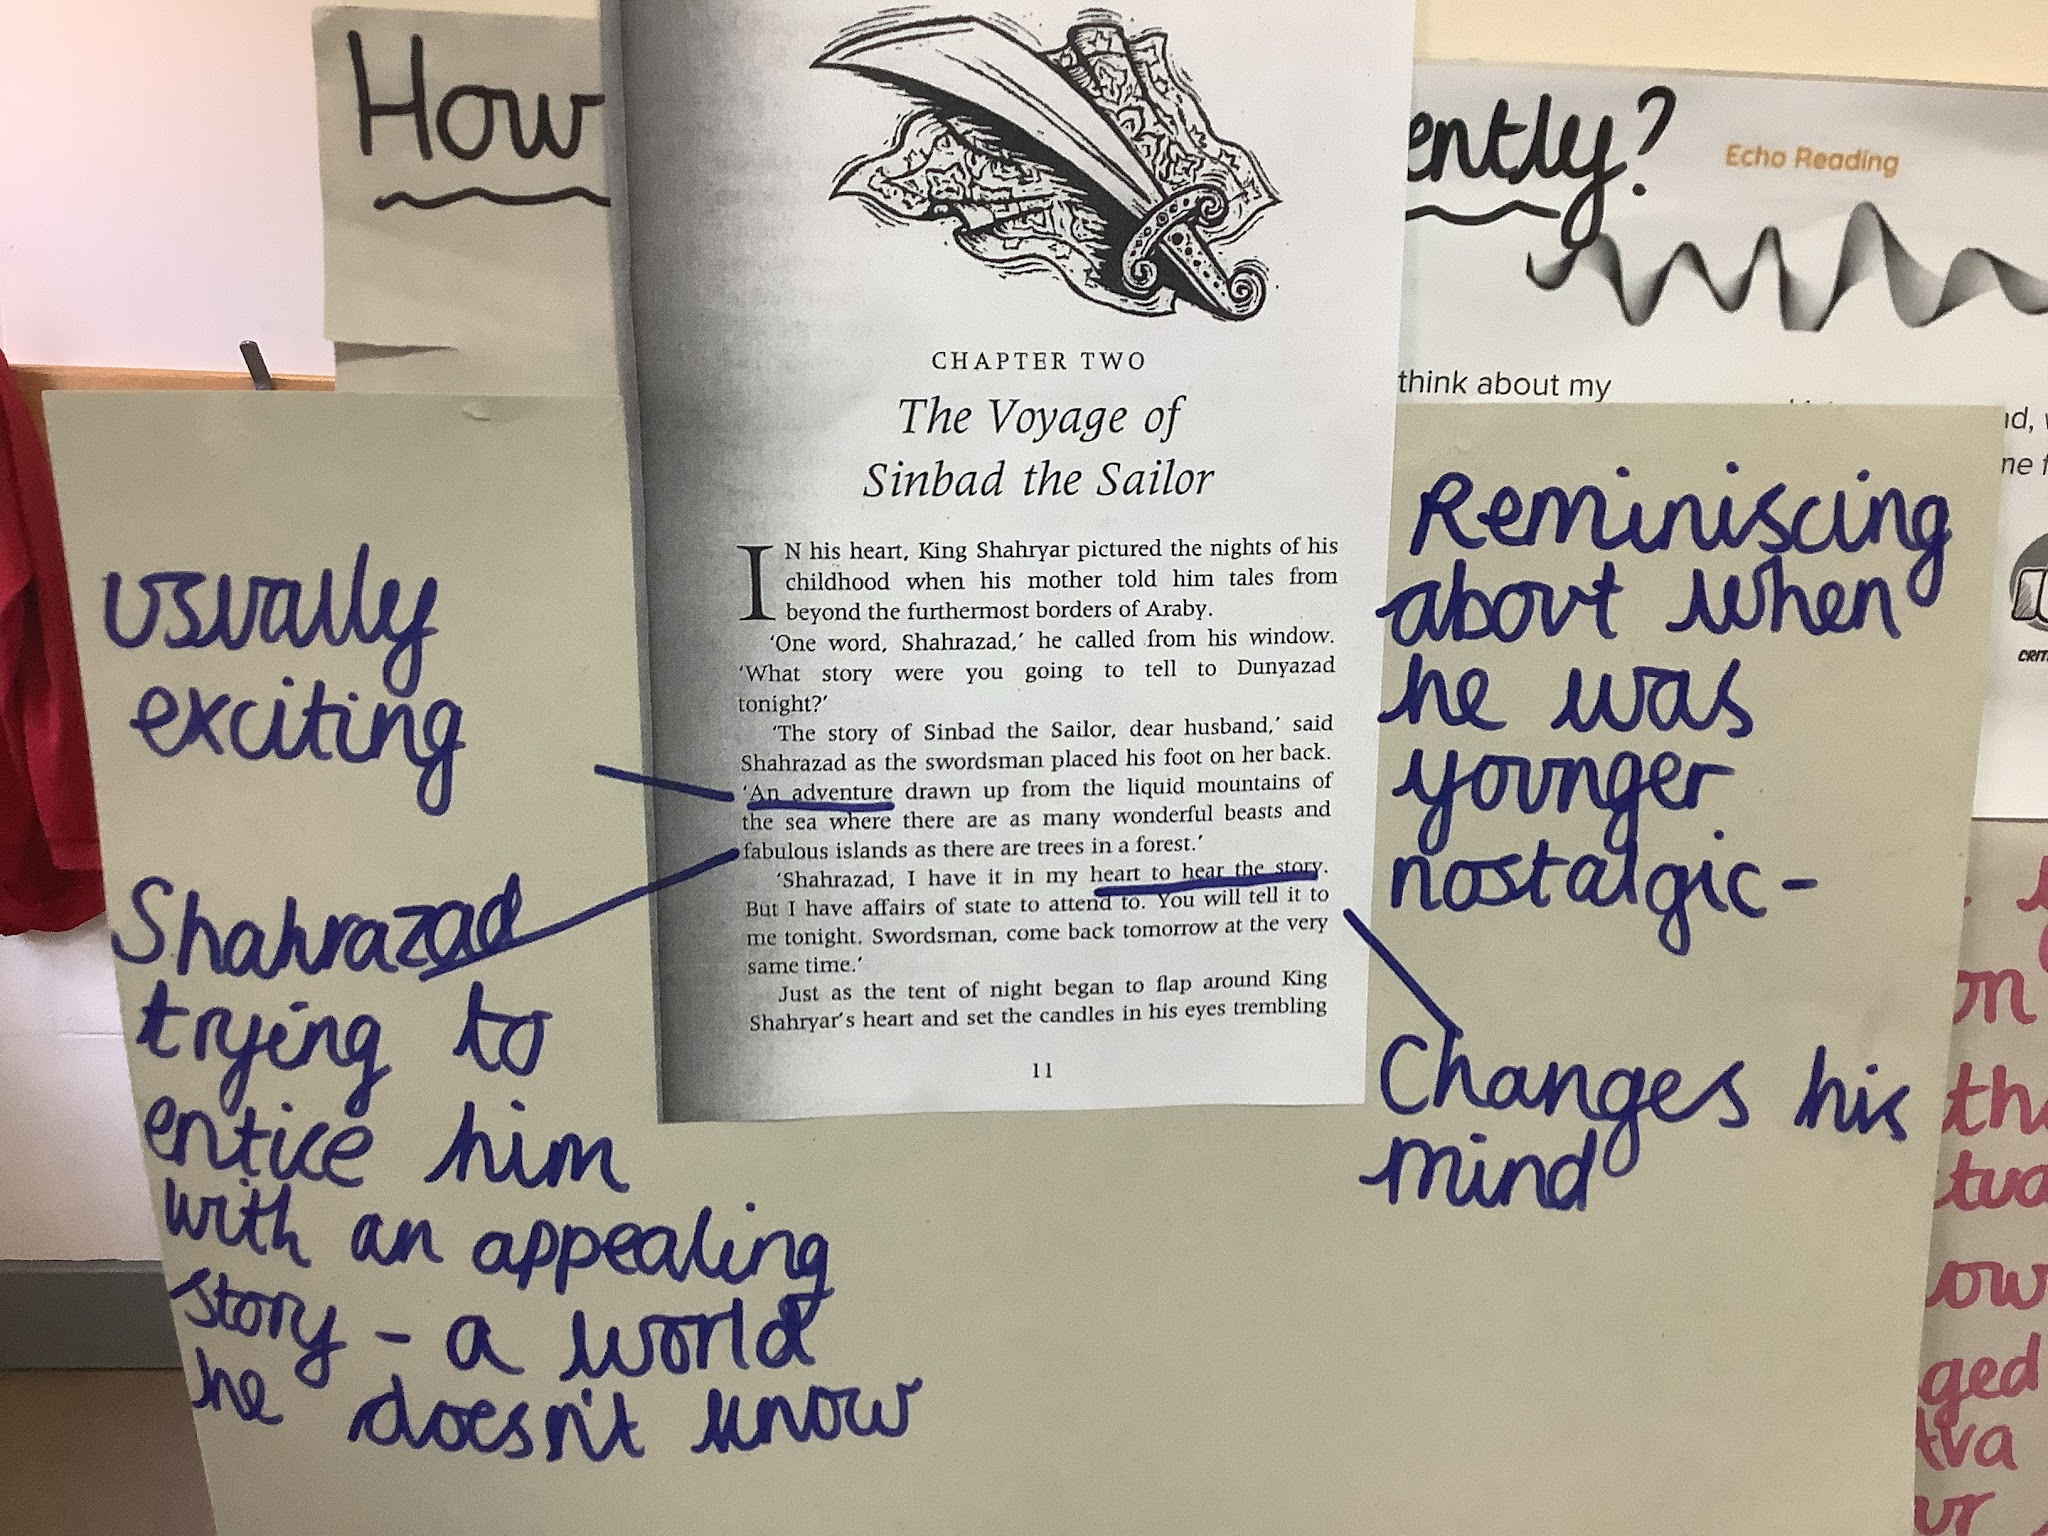 How
ently?
Echo Reading
think about my
CHAPTER TWO
The Voyage of
Sinbad the Sailor
IN his heart, King Shahryar pictured the nights of his
childhood when his mother told him tales from
beyond the furthermost borders of Araby.
'One word, Shahrazad,' he called from his window.
'What story were you going to tell to Dunyazad
tonight?'
'The story of Sinbad the Sailor, dear husband,' said
Shahrazad as the swordsman placed his foot on her back.
'An adventure drawn up from the liquid mountains of
the sea where there are as many wonderful beasts and
fabulous islands as there are trees in a forest.'
'Shahrazad, I have it in my heart to hear the story.
But I have affairs of state to attend to. You will tell it to
me tonight. Swordsman, come back tomorrow at the very
same time.'
Just as the tent of night began to flap around King
Shahryar's heart and set the candles in his eyes trembling
11
usually
exciting
Shahrazad
trying to
entice him
with an appealing
story - a world
he doesn't know
Reminiscing
about when
he was
younger
nostalgic -
Changes his
mind
CRIT
on
tua
ow
ged